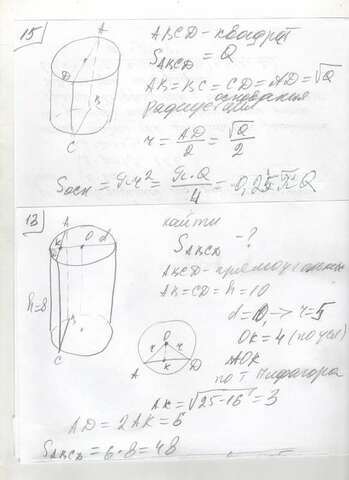 15)
A
D
B
C
ABCD - квадрат
S ABCD = Q
AB = BC = CD = AD = √Q
радиус основания
r = AD/2 = √Q/2
Sосн = π·r² = π·Q/4 = 0,25 π Q
13
A
O
d
h=8
B
C
найти
S ABCD - ?
ABCD - прямоугольник
AB = CD = h = 10
d = 10, → r = 5
OK = 4 (по усл)
AOK
по т Пифагора
O
r
r
A
K
D
AK = √25-16 = 3
AD = 2AK = 6
S ABCD = 6·8 = 48